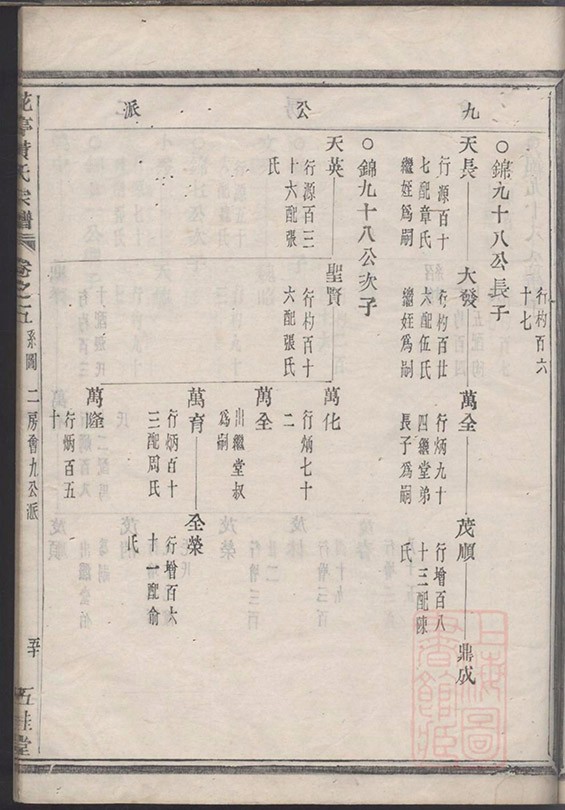 九公派
行杓百六
十七
○錦九十八公長子
天長
行源百十
七配章氏
繼姪爲嗣
大發
行杓百廿
六配伍氏
繼姪爲嗣
萬全
行炳九十
四繼堂弟
長子爲嗣
茂順
行增百八
十三配陳
氏
鼎成
○錦九十八公次子
天英
行源百三
十六配張
氏
聖賢
行杓百十
六配張氏
萬化
行炳七十
二
萬全
出繼堂叔
爲嗣
萬育
行炳百十
三配周氏
全榮
行增百六
十一配俞
氏
萬隆
行炳百五
十
花亭黄氏宗譜 卷之五 系圖 二房會九公派 五十 五桂堂
上海圖書館藏